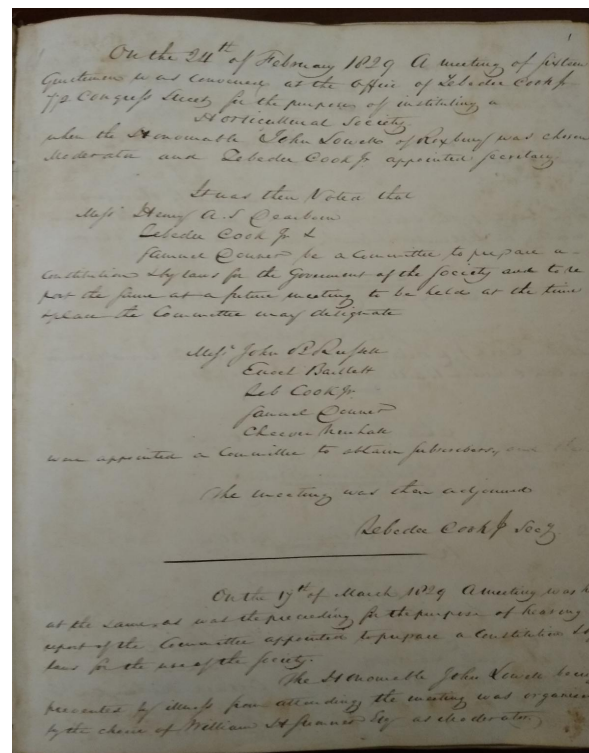 1
On the 24th of February 1829 A meeting of sixteen
Gentlemen was convened at the Office of Zebedee Cook Jr
7½ Congress Street for the purpose of instituting a
Horticultural Society
when the Honourable John Lowell of Roxbury was chosen
Moderator and Zebedee Cook Jr appointed Secretary
It was then Voted that
Messrs Henry A. S. Dearborn
Zebedee Cook Jr &
Samuel Downer be a Committee to prepare a
Constitution & by laws for the Government of the Society and to re
port the same at a future meeting to be held at the time
& place the Committee may designate
Messrs John B Russell
Enoch Bartlett
Zeb Cook Jr
Samuel Downer
Cheever Newhall
were appointed a Committee to obtain subscribers, and
The meeting was then adjourned
Zebedee Cook Jr Secy
On the 17th of March 1829 A meeting was
at the same, as was the preceeding for the purpose of hearing
report of the Committee appointed to prepare a Constitution & by
laws for the use of the Society.
The Honourable John Lowell being
prevented by illness from attending, the meeting was organised
by the choice of William H Sumner Esq as Moderator,